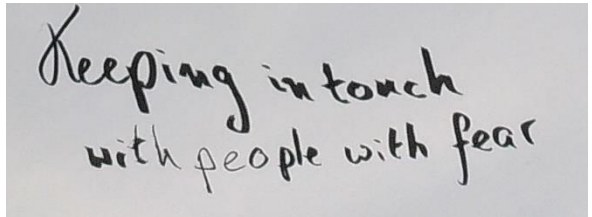 Keeping in touch
with people with fear